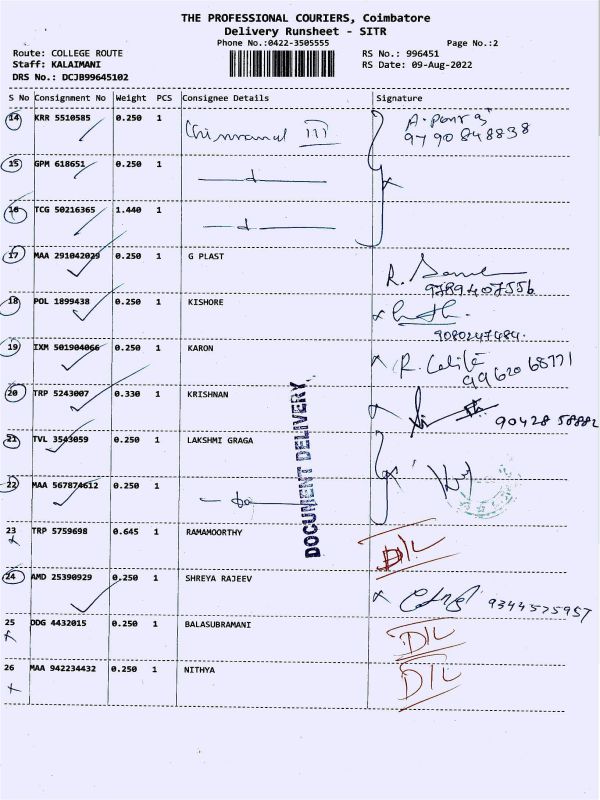 THE PROFESSIONAL COURIERS, Coimbatore
Delivery Runsheet - SITR
Phone No.:0422-3505555 Page No.:2
Route: COLLEGE ROUTE RS No.: 996451
Staff: KALAIMANI RS Date: 09-Aug-2022
DRS No.: DCJB99645102
S No Consignment No Weight PCS Consignee Details Signature
14 KRR 5510585 0.250 1 III 9790848838
15 GPM 618651 0.250 1
16 TCG 50216365 1.440 1
17 MAA 291042029 0.250 1 G PLAST R.
9789407556
18 POL 1899438 0.250 1 KISHORE
9080247484.
19 IXM 501904066 0.250 1 KARON R.
9962068771
20 TRP 5243007 0.330 1 KRISHNAN 90428 58882
21 TVL 3543059 0.250 1 LAKSHMI GRAGA
22 MAA 567874612 0.250 1
DOCUMENT DELIVERY
23 TRP 5759698 0.645 1 RAMAMOORTHY D/L
24 AMD 25390929 0.250 1 SHREYA RAJEEV 9344575957
25 DDG 4432015 0.250 1 BALASUBRAMANI D/L
26 MAA 942234432 0.250 1 NITHYA D/L